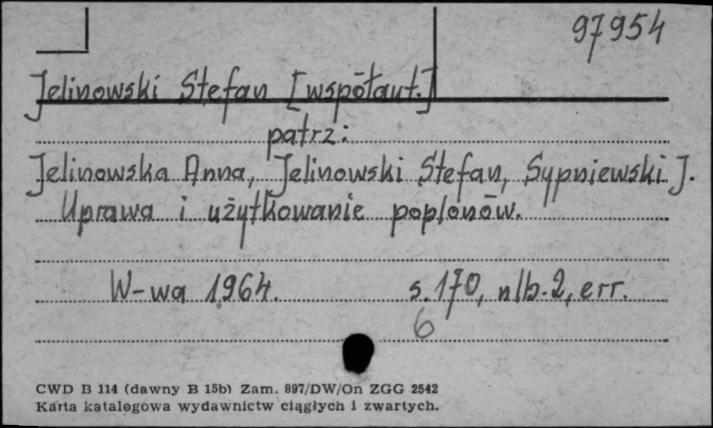 97954
Jelinowski Stefan [współaut.]
patrz:
Jelinowska Anna, Jelinowski Stefan, Sypniewski J.
Uprawa i użytkowanie poplonów.
W-wa 1964. s. 170, nlb. 2, err.
6
CWD B 114 (dawny B 15b) Zam. 897/DW/On ZGG 2542
Karta katalogowa wydawnictw ciągłych i zwartych.